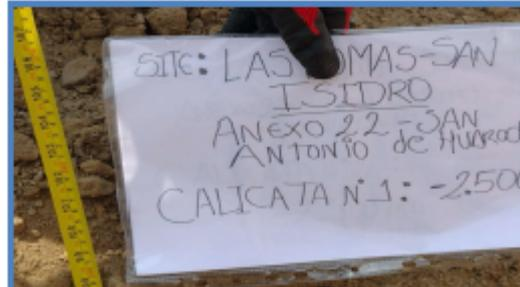 SITE: LAS OMAS-SAN
ISIDRO
ANEXO 22-SAN
ANTONIO de HUAROC
CALICATA N°1: -2.500